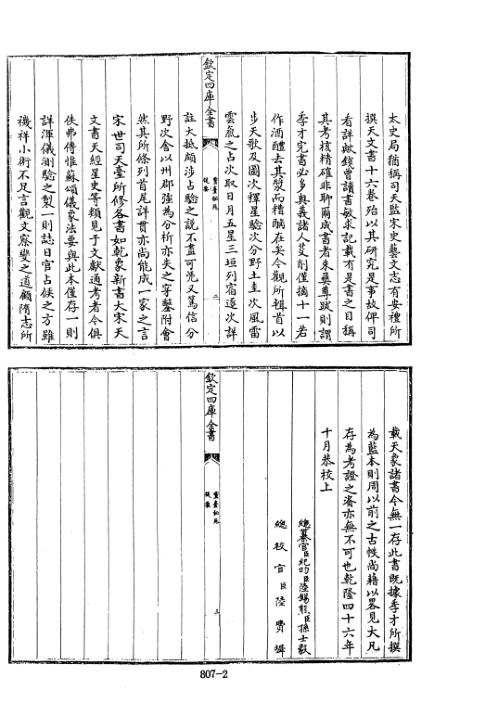 太史局猶稱司天監宋史藝文志有安禮所
撰天文書十六卷殆以其研究是事故俾司
看詳歟錢曾讀書敏求記載有是書之目稱
其考核精確非聊爾成書者朱彝尊跋則謂
季才完書必多奧義諸人芟削僅摘十一若
作酒醴去其漿而糟醨在矣今觀所輯首以
步天歌及圖次釋星驗次分野土圭次風雷
雲氣之占次取日月五星三垣列宿逐次詳
欽定四庫全書
靈臺秘苑
提要
二
註大抵頗涉占驗之說不盡可凭又篤信分
野次舍以州郡強為分析亦失之穿鑿附會
然其所條列首尾詳貫亦尚能成一家之言
宋世司天臺所修各書如乾象新書大宋天
文書天經星史等類見于文獻通考者今俱
佚弗傳惟蘇頌儀象法要與此本僅存一則
詳渾儀測驗之製一則誌日官占候之方雖
禨祥小術不足言觀文察變之道顧隋志所
載天象諸書今無一存此書既據季才所撰
為藍本則周以前之古帙尚藉以畧見大凡
存為考證之資亦無不可也乾隆四十六年
十月恭校上
總纂官臣紀昀臣陸錫熊臣孫士毅
總校官臣陸費墀
欽定四庫全書
靈臺秘苑
提要
三
807-2